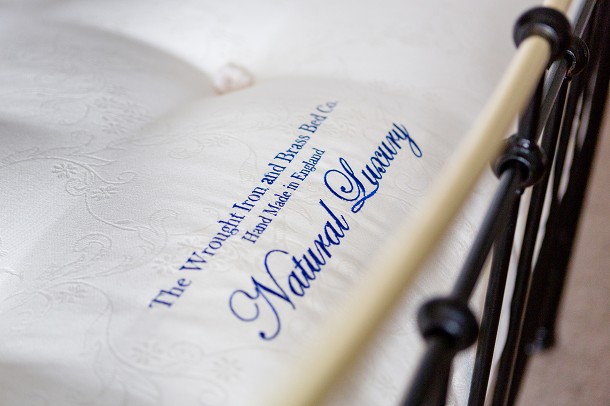 The Wrought Iron and Brass Bed Co.
Hand Made in England
Natural Luxury